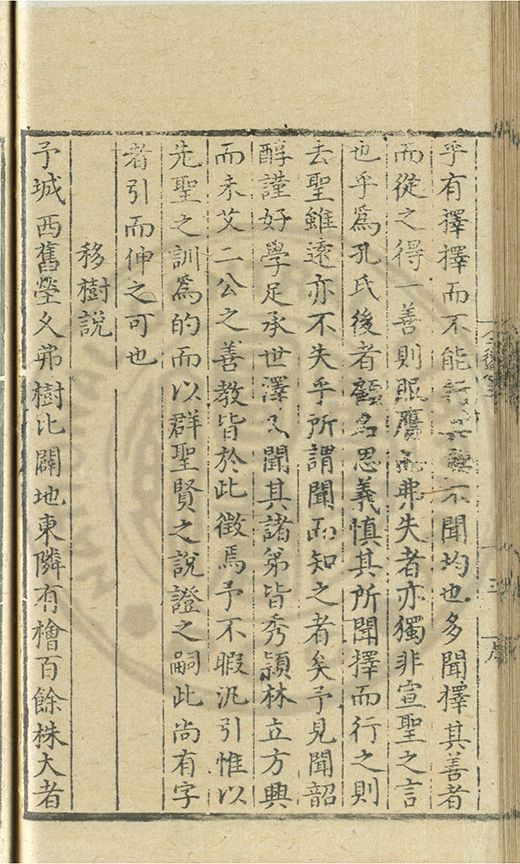 乎有擇擇而不能行與不聞均也多聞擇其善者
而從之得一善則服膺而弗失者亦獨非宣聖之言
也乎爲孔氏後者顧名思義慎其所聞擇而行之則
去聖雖遠亦不失乎所謂聞而知之者矣予見聞韶
醇謹好學足承世澤又聞其諸弟皆秀穎林立方興
而未艾二公之善教皆於此徵焉予不暇汎引惟以
先聖之訓爲的而以群聖賢之說證之嗣此尚有字
者引而伸之可也
移樹說
予城西舊塋久弗樹比闢地東隣有檜百餘株大者